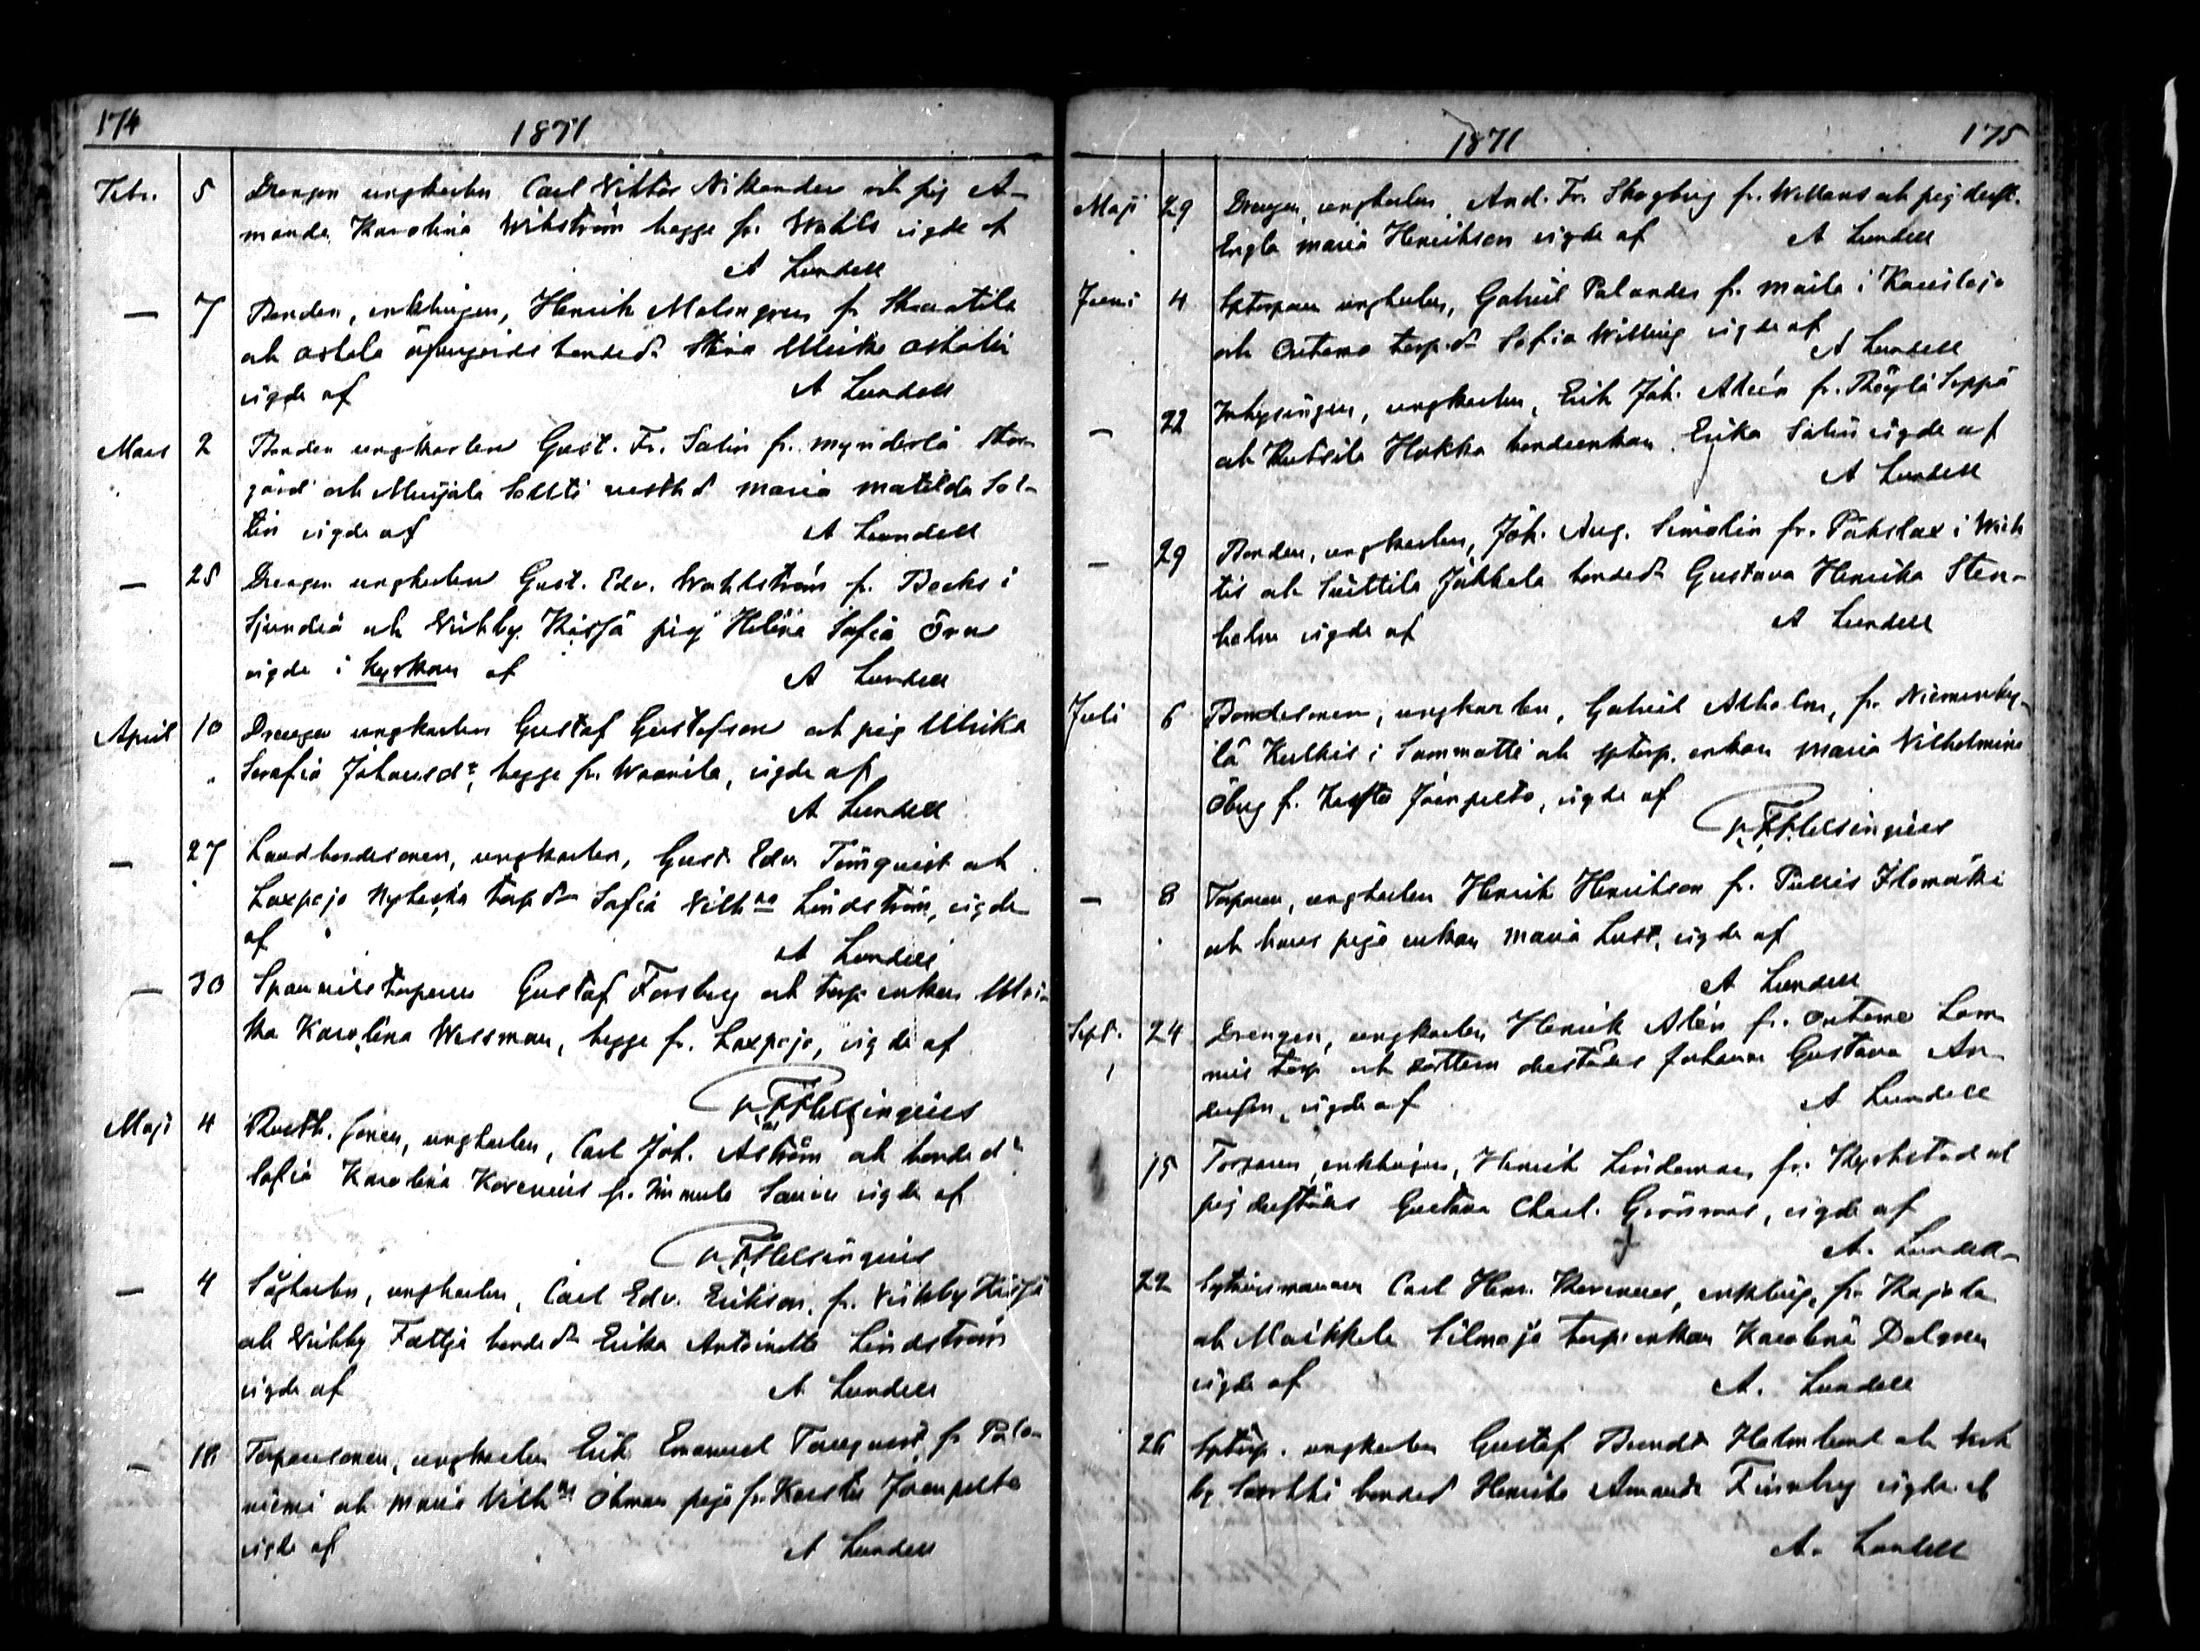 174
1871
Febr. 5 Drengen ungkarlen Carl Viktor Nikander och pig A-
manda Karolina Wikström begge fr. Wahls vigde af
A Lundell
— 7 Bonden, enklingen, Henrik Malmgren fr
och ostala bonded: Stina Ulrika
vigde af A Lundell
Mars 2 Bonden ungkarlen Gust. Fr. Salin fr. Mynderlä Stor-
gård och Sallti rusthd Maria Matilda Sal-
lin vigde af A Lundell
— 25 Drengen ungkarlen Gust. Edv. Wahlström fr. Becks i
Sjundeå och Wirkby pig Helena Sofia Örn
vigde i kyrkan af A Lundell
April 10 Drengen ungkarlen Gustaf Gustafson och pig Ulrika
Serafia Johansdr, begge fr. Waanila, vigde af
A Lundell
— 27 Landbondesonen, ungkarlen, Gust. Edv Törnquist och
Laxpojo torpdr Sofia Vilhna Lindström, vigde
af A Lundell
— 30 Spannmålstorparen Gustaf Forsberg och torp. enkan Ulri-
ka Karolina Wessman, begge fr. Laxpojo, vigde af
Helsingius
Maji 4 Rusth. sonen, ungkarlen, Carl Joh. Åström och bonded:
Sofia Karolina Korenius fr. vigde af
Helsingius
— 4 Sågkarlen, ungkarlen, Carl Edv. Erikson, fr. Virkby
och Virkby Fattja bondedr Erika Antoinetta Lindström
vigde af A Lundell
— 18 Torparesonen, ungkarlen Erik Emanuel fr Palo-
niemi och Maria Vilhna Öhman piga fr. Karstu Joenpelto
vigde af A Lundell
1871
175
Maji 29 Drengen, ungkarlen, And. Fr. Skogberg fr. och pig derst.
Engla Maria Henrikson vigde af A Lundell
Juni 4 Sptorparen ungkarlen, Gabriel Palander fr. Maila i Karislojo
och Outamo torp.dr Sofia Willing vigde af
A Lundell
— 22 Inhysingen, ungkarlen, Erik Joh. Alén fr. Seppä
och Hakka bondeenkan Erika Salin vigde af
A Lundell
— 29 Bonden, ungkarlen, Joh. Aug. Simolin fr. Påkslax i Wich-
tis och Suittila Jakkala bondedr Gustava Henrika Sten-
holm vigde af A Lundell
Juli 6 Bondesonen, ungkarlen, Gabriel Alholm, fr. Niemenky-
lä i Sammatti och sptorp. enkan Maria Vilhelmina
Öberg f. Karstu Joenpelto, vigde af
Helsingius
— 8 Torparen, ungkarlen Henrik Henrikson fr. Pullis Ilomäki
och hans piga enkan Maria Lust, vigde af
A Lundell
Sept. 24 Drengen, ungkarlen Henrik Alén fr. Outamo Lam-
mis torp och dottern derstädes Johanna Gustava An-
dersson, vigde af A Lundell
15 Torparen, enklingen, Henrik Lindeman fr. Kyrkstad och
pig derstädes Gustava Charl. Grönroos, vigde af
A. Lundell
22 Sytningsmannen Carl Henr. Korenius, enkling, fr. Kajola
och Maikkala Silmäjä torp.enkan Karolina Dalgren
vigde af A. Lundell
26 Sptorp. ungkarlen Gustaf Holmlund och Virk-
by bonded Henrika Amanda Finnberg vigde af
A. Lundell